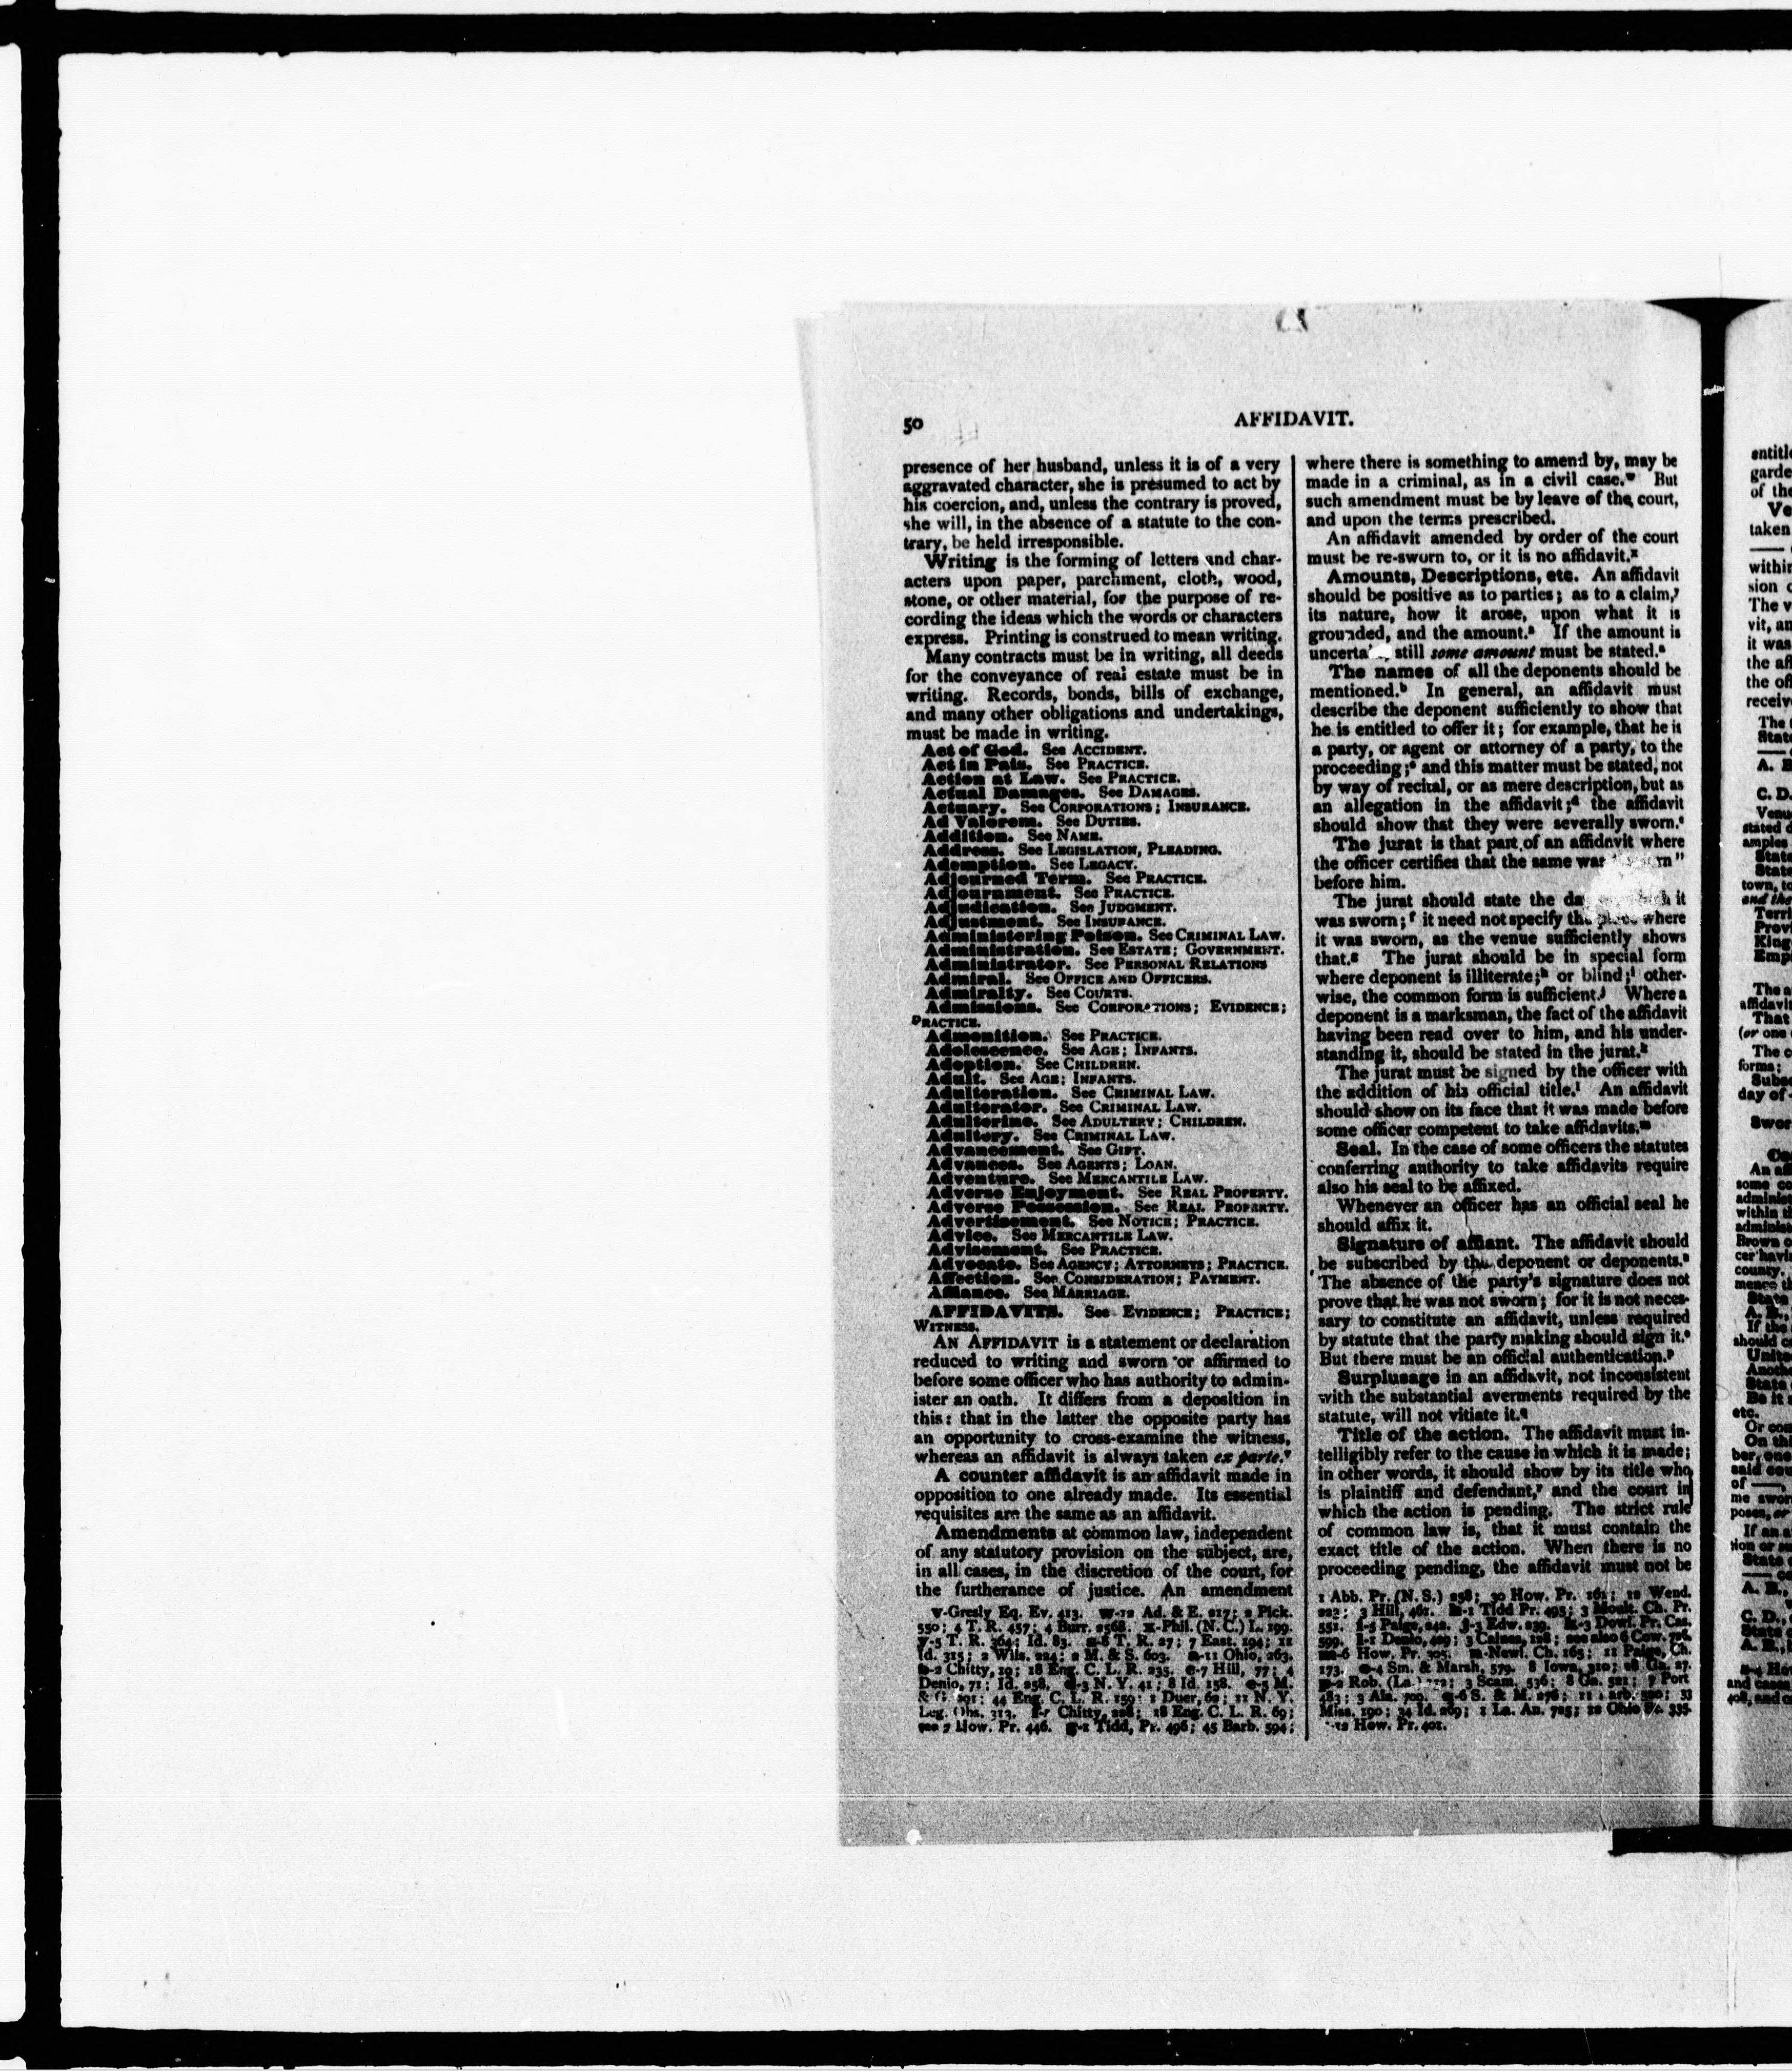 50
AFFIDAVIT.
presence of her husband, unless it is of a very
aggravated character, she is presumed to act by
his coercion, and, unless the contrary is proved,
she will, in the absence of a statute to the con-
trary, be held irresponsible.
Writing is the forming of letters and char-
acters upon paper, parchment, cloth, wood,
stone, or other material, for the purpose of re-
cording the ideas which the words or characters
express. Printing is construed to mean writing.
Many contracts must be in writing, all deeds
for the conveyance of real estate must be in
writing. Records, bonds, bills of exchange,
and many other obligations and undertakings,
must be made in writing.
Act of God. See ACCIDENT.
Act in Pais. See PRACTICE.
Action at Law. See PRACTICE.
Actual Damages. See DAMAGES.
Actuary. See CORPORATIONS; INSURANCE.
Ad Valorem. See DUTIES.
Addition. See NAME.
Address. See LEGISLATION, PLEADING.
Ademption. See LEGACY.
Adjourned Term. See PRACTICE.
Adjournment. See PRACTICE.
Adjudication. See JUDGMENT.
Adjustment. See INSURANCE.
Administering Poison. See CRIMINAL LAW.
Administration. See ESTATE; GOVERNMENT.
Administrator. See PERSONAL RELATIONS
Admiral. See OFFICE AND OFFICERS.
Admiralty. See COURTS.
Admissions. See CORPORATIONS; EVIDENCE;
PRACTICE.
Admonition. See PRACTICE.
Adolescence. See AGE; INFANTS.
Adoption. See CHILDREN.
Adult. See AGE; INFANTS.
Adulteration. See CRIMINAL LAW.
Adulterator. See CRIMINAL LAW.
Adulterine. See ADULTERY; CHILDREN.
Adultery. See CRIMINAL LAW.
Advancement. See GIFT.
Advances. See AGENTS; LOAN.
Adventure. See MERCANTILE LAW.
Adverse Enjoyment. See REAL PROPERTY.
Adverse Possession. See REAL PROPERTY.
Advertisement. See NOTICE; PRACTICE.
Advice. See MERCANTILE LAW.
Advisement. See PRACTICE.
Advocate. See AGENCY; ATTORNEYS; PRACTICE.
Affection. See CONSIDERATION; PAYMENT.
Affiance. See MARRIAGE.
AFFIDAVITS. See EVIDENCE; PRACTICE;
WITNESS.
AN AFFIDAVIT is a statement or declaration
reduced to writing and sworn or affirmed to
before some officer who has authority to admin-
ister an oath. It differs from a deposition in
this: that in the latter the opposite party has
an opportunity to cross-examine the witness,
whereas an affidavit is always taken ex parte.v
A counter affidavit is an affidavit made in
opposition to one already made. Its essential
requisites are the same as an affidavit.
Amendments at common law, independent
of any statutory provision on the subject, are,
in all cases, in the discretion of the court, for
the furtherance of justice. An amendment
v-Gresly Eq. Ev. 413. w-12 Ad. & E. 217; 2 Pick.
550; 4 T. R. 457; 4 Burr. 2568. x-Phil. (N. C.) L. 199.
y-5 T. R. 364; Id. 83. z-8 T. R. 27; 7 East. 194; 11
Id. 315; 2 Wils. 224; 2 M. & S. 603. a-11 Ohio, 263.
b-2 Chitty, 19; 18 Eng. C. L. R. 235. c-7 Hill, 77; 4
Denio, 71; Id. 258. d-3 N. Y. 41; 8 Id. 158. e-5 M.
& G. 201; 44 Eng. C. L. R. 159; 1 Duer, 62; 11 N. Y.
Leg. Obs. 313. Chitty, 228; 18 Eng. C. L. R. 69;
see 7 How. Pr. 446. g-1 Tidd, Pr. 496; 45 Barb. 594;
where there is something to amend by, may be
made in a criminal, as in a civil case.w But
such amendment must be by leave of the court,
and upon the terms prescribed.
An affidavit amended by order of the court
must be re-sworn to, or it is no affidavit.x
Amounts, Descriptions, etc. An affidavit
should be positive as to parties; as to a claim,y
its nature, how it arose, upon what it is
grounded, and the amount.z If the amount is
still some amount must be stated.a
The names of all the deponents should be
mentioned.b In general, an affidavit must
describe the deponent sufficiently to show that
he is entitled to offer it; for example, that he is
a party, or agent or attorney of a party, to the
proceeding;c and this matter must be stated, not
by way of recital, or as mere description, but as
an allegation in the affidavit;d the affidavit
should show that they were severally sworn.e
The jurat is that part of an affidavit where
the officer certifies that the same was
before him.
The jurat should state the it
was sworn;f it need not specify the place where
it was sworn, as the venue sufficiently shows
that.g The jurat should be in special form
where deponent is illiterate;h or blind;i other-
wise, the common form is sufficient.j Where a
deponent is a marksman, the fact of the affidavit
having been read over to him, and his under-
standing it, should be stated in the jurat.k
The jurat must be signed by the officer with
the addition of his official title.l An affidavit
should show on its face that it was made before
some officer competent to take affidavits.m
Seal. In the case of some officers the statutes
conferring authority to take affidavits require
also his seal to be affixed.
Whenever an officer has an official seal he
should affix it.
Signature of affiant. The affidavit should
be subscribed by the deponent or deponents.n
The absence of the party's signature does not
prove that he was not sworn; for it is not neces-
sary to constitute an affidavit, unless required
by statute that the party making should sign it.o
But there must be an official authentication.p
Surplusage in an affidavit, not inconsistent
with the substantial averments required by the
statute, will not vitiate it.q
Title of the action. The affidavit must in-
telligibly refer to the cause in which it is made;
in other words, it should show by its title who
is plaintiff and defendant,r and the court in
which the action is pending. The strict rule
of common law is, that it must contain the
exact title of the action. When there is no
proceeding pending, the affidavit must not be
1 Abb. Pr. (N. S.) 258; 30 How. Pr. 161; 12 Wend.
222; 3 Hill, 461. h-1 Tidd Pr. 495; 3 Moult. Ch. Pr.
551. i-5 Paige, 242. j-3 Edw. 239. k-3 Dowl. Pr. Cas.
599. l-1 Denio, 429; 3 Caines, 128; see also 6 Cow.
m-6 How. Pr. 305. n-Newl. Ch. 165; 11 Paige, Ch.
173. o-4 Sm. & Marsh, 579. 8 Iowa, 310; 18 Ga. 27.
p-2 Rob. (La.) 3 Scam. 536; 8 Ga. 521; 7 Port
483; 3 Ala. 709. q-6 S. & M. 276; 11 33
Miss. 190; 34 Id. 269; 1 La. An. 725; 335.
12 How. Pr. 401.